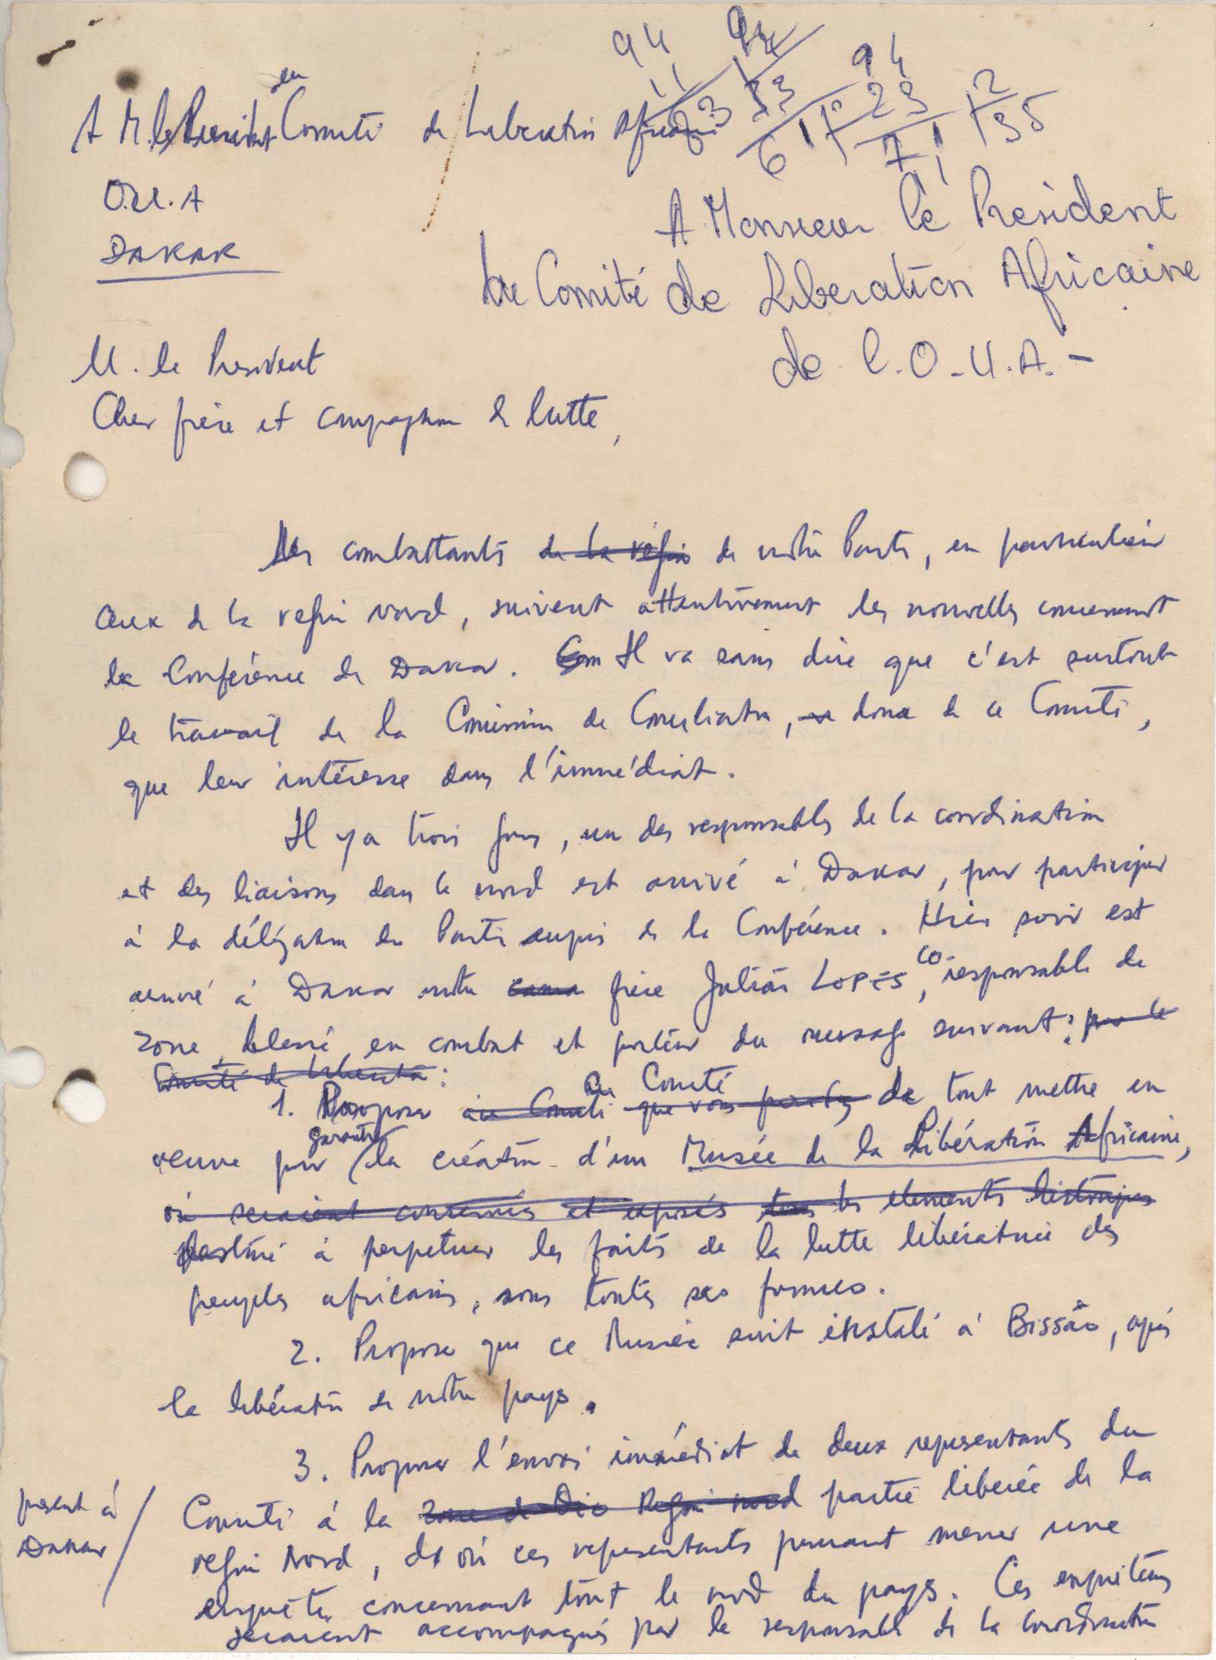 94
94
94
11
33
23
2
63
61
71
35
A M. le President du Comité de Liberation Africaine
O.U.A
DAKAR
A Monsieur le President
du Comité de Liberation Africaine
de l'O.U.A. -
M. le President
Cher frère et compagnon de lutte,
Les combattants de la région de notre Parti, en particulier
ceux de la région nord, suivent attentivement les nouvelles concernant
la Conférence de Dakar. Il va sans dire que c'est surtout
le travail de la Commission de Conciliation, donc de ce Comité,
que leur intéresse dans l'immédiat.
Il y a trois jours, un des responsables de la coordination
et des liaisons dans le nord est arrivé à Dakar, pour participer
à la délégation du Parti auprès de la Conférence. Hier soir est
arrivé à Dakar notre frère Julião LOPES, co-responsable de
zone, blessé en combat et porteur du message suivant: par le
Comité de liberation:
1. Proposer au Comité que vous au Comité de tout mettre en
oeuvre pour garantir la création d'un Musée de la Libération Africaine,
où seraient conservés et exposés tous les elements historiques
destiné à perpetuer les faits de la lutte libératrice des
peuples africains, sous toutes ses formes.
2. Propose que ce Musée soit installé à Bissão, après
la libération de notre pays.
3. Proposer l'envoi immédiat de deux representants du
Comité présent à Dakar / à la zone de Region nord partie liberée de la
région Nord, d'où ces representants peuvent mener une
enquête concernant tout le nord du pays. Ces enquêteurs
seraient accompagnés par le responsable de la coordination